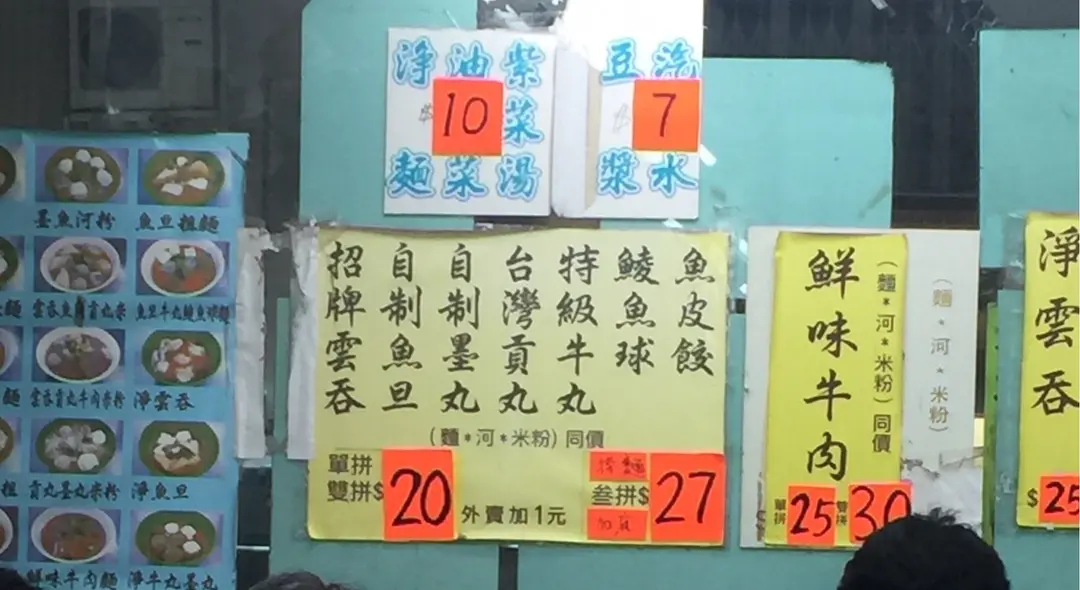 紫菜湯
油菜
淨麵
$10
汽水
豆漿
$7
墨魚河粉
魚旦粗麵
雲吞魚旦貢丸米
魚旦牛丸鯪魚球麵
麵
雲吞貢丸牛肉米粉
淨雲吞
粗
貢丸墨丸米粉
淨魚旦
鮮味牛肉麵
淨牛丸墨丸
魚皮餃
鯪魚球
特級牛丸
台灣貢丸
自制墨丸
自制魚旦
招牌雲吞
(麵*河*米粉)同價
單拼
雙拼$20
外賣加1元
叁拼$27
(麵*河*米粉)同價
鮮味牛肉
單拼25
雙拼30
(麵*河*米粉)
淨雲吞
$25